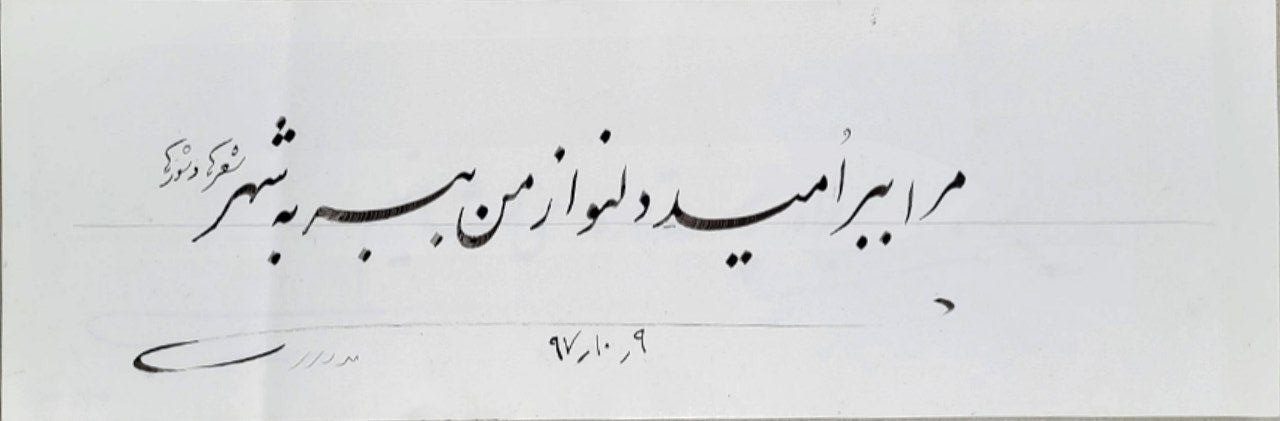 مرا ببر اُمید دلنواز من ببر به شهر شعرها و شورها
۹ر۱۰ر۹۷